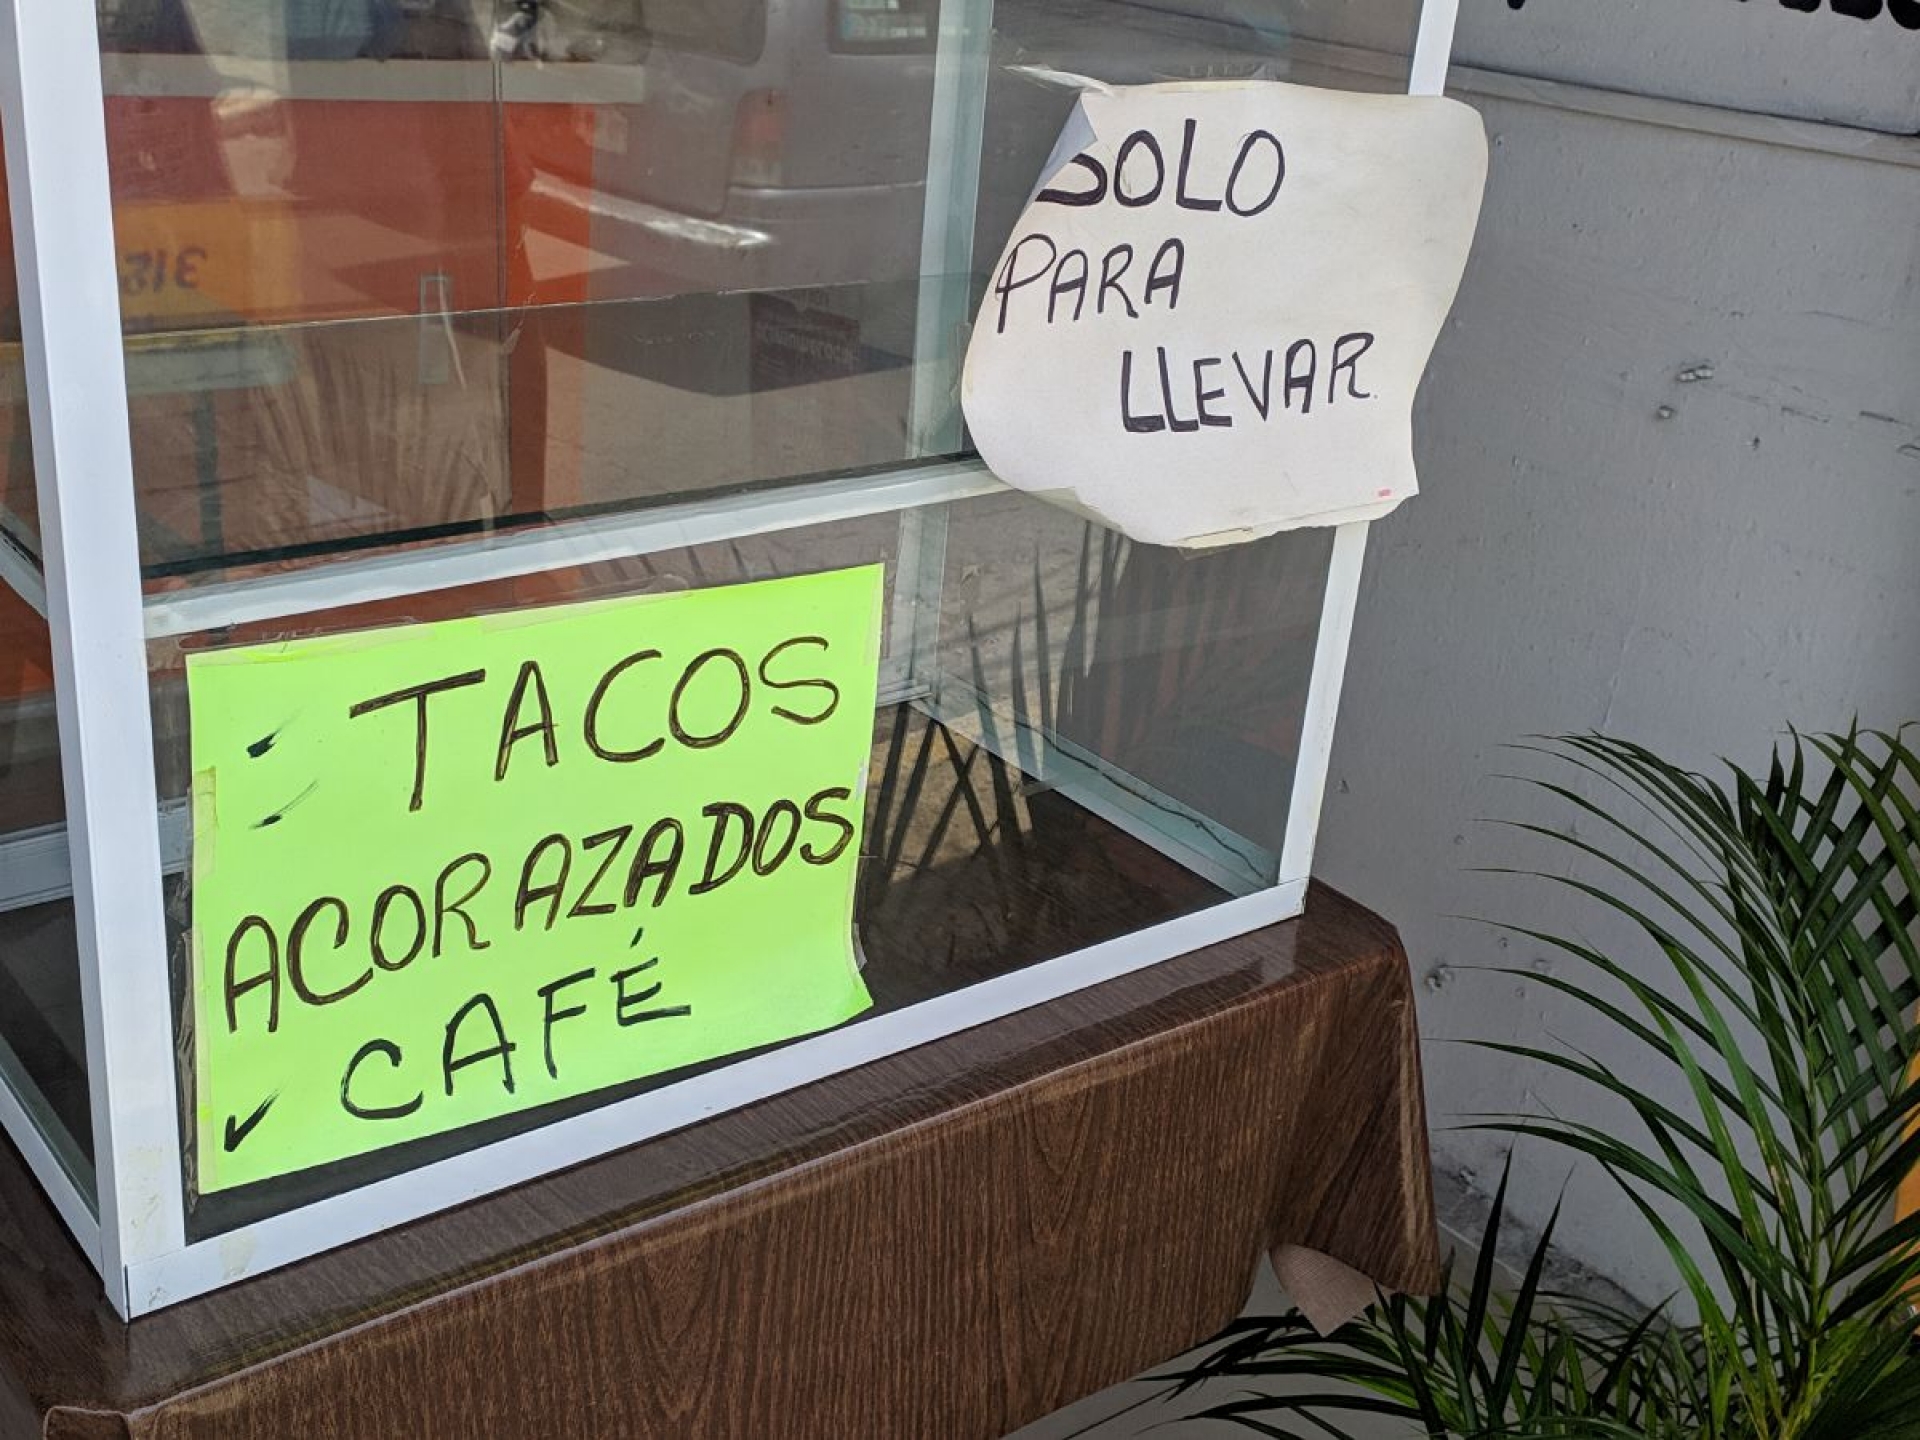 SOLO
PARA
LLEVAR.
TACOS
ACORAZADOS
CAFÉ
312